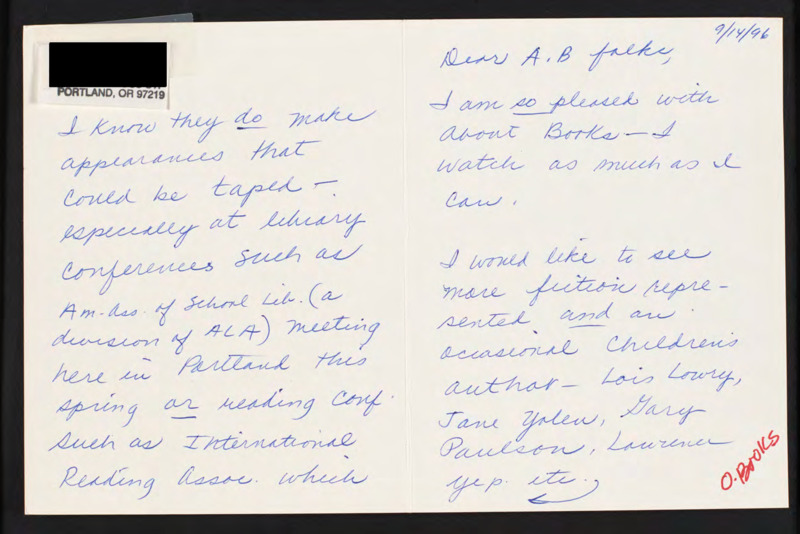 9/14/96
Dear A.B folks,
I am so pleased with
About Books — I
watch as much as I
can.
I would like to see
more fiction repre-
sented and an
occasional Children's
author — Lois Lowry,
Jane Yolen, Gary
Paulson, Lawrence
Yep. etc.
O.BOOKS
PORTLAND, OR 97219
I know they do make
appearances that
could be taped —
especially at library
conferences such as
Am. Ass. of School Lib. (a
division of ALA) meeting
here in Portland this
spring or reading conf.
such as International
Reading Assoc. which